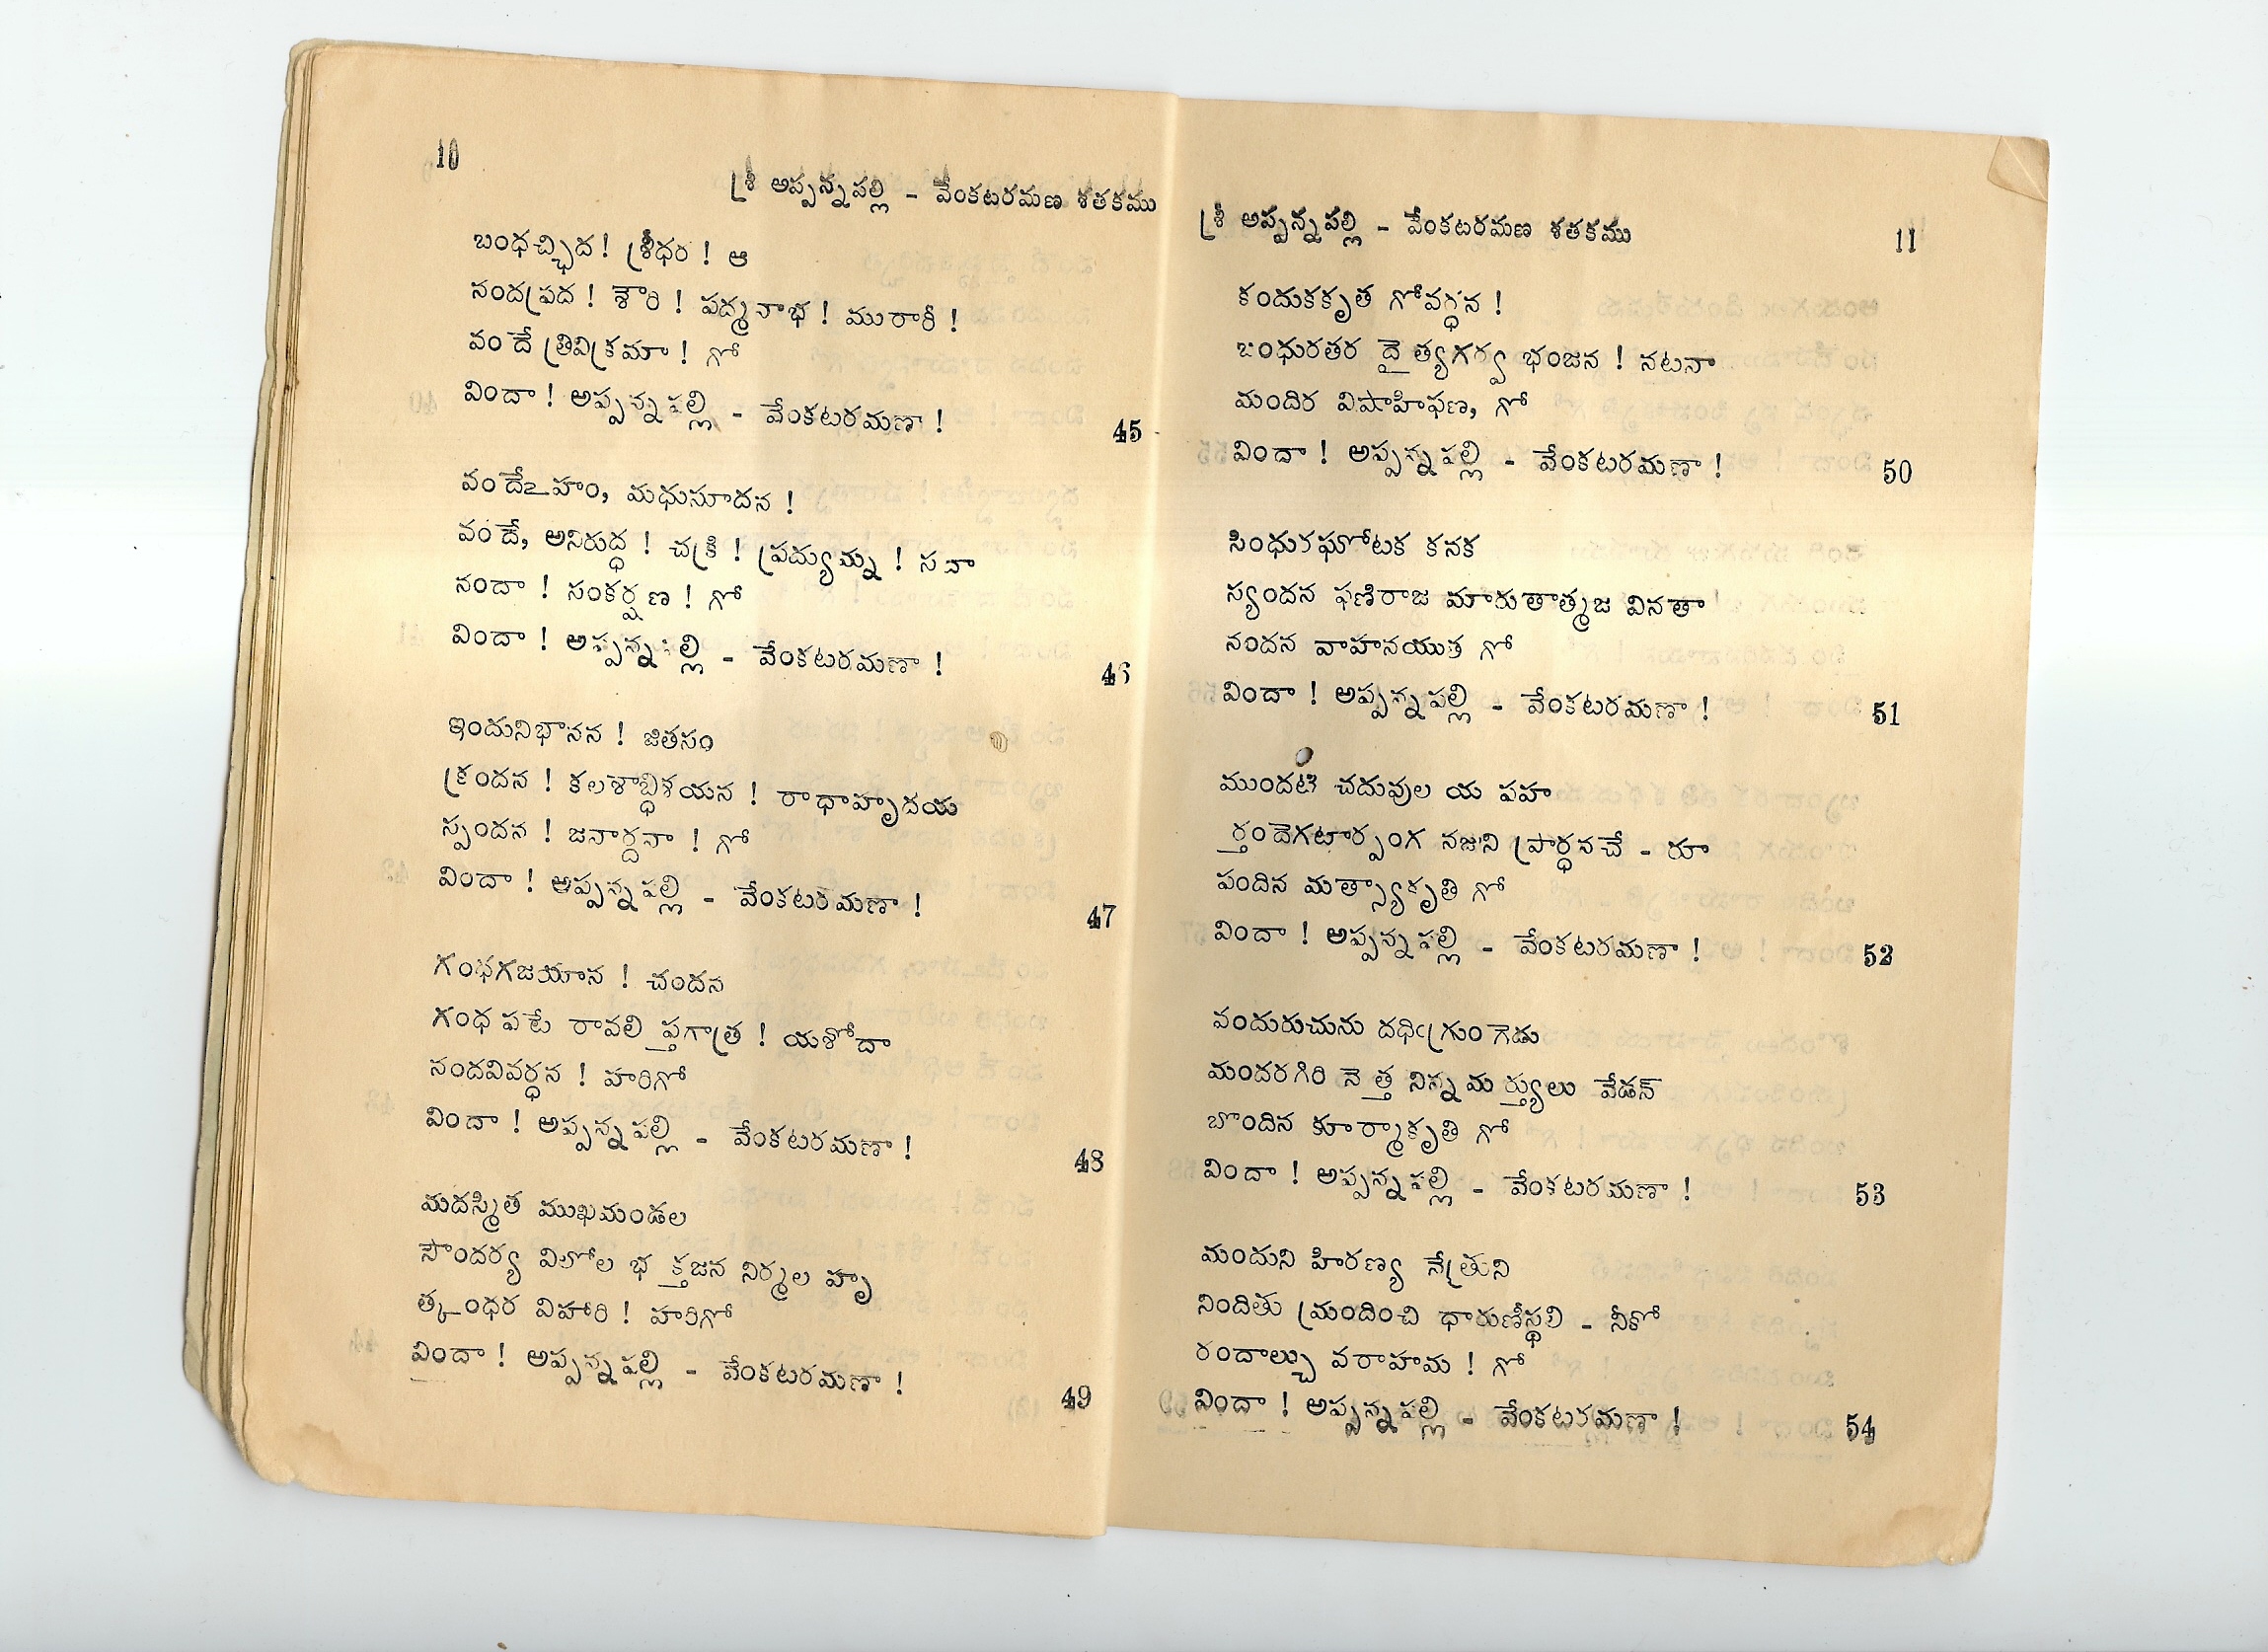 10
శ్రీ అప్పన్నపల్లి - వేంకటరమణ శతకము
బంధచ్ఛిద! శ్రీధర! ఆ
నందప్రద! శౌరి! పద్మనాభ! మురారీ!
వందే త్రివిక్రమా! గో
విందా! అప్పన్నపల్లి - వేంకటరమణా! 45
వందేఽహం, మధుసూదన!
వందే, అనిరుద్ధ! చక్రి! ప్రద్యుమ్న! సదా
నందా! సంకర్షణ! గో
విందా! అప్పన్నపల్లి - వేంకటరమణా! 46
ఇందునిభానన! జితసం
క్రందన! కలశాబ్ధిశయన! రాధాహృదయ
స్పందన! జనార్దనా! గో
విందా! అప్పన్నపల్లి - వేంకటరమణా! 47
గంభగజయాన! చందన
గంధ పటీ రావలి ప్తగాత్ర! యశోదా
నందవివర్ధన! హరిగో
విందా! అప్పన్నపల్లి - వేంకటరమణా! 48
మదస్మిత ముఖమండల
సౌందర్య విలోల భక్తజన నిర్మల హృ
త్కంధర విహారి! హరిగో
విందా! అప్పన్నపల్లి - వేంకటరమణా! 49
శ్రీ అప్పన్నపల్లి - వేంకటరమణ శతకము
11
కందుకకృత గోవర్ధన!
బంధురతర దైత్యగర్వ భంజన! నటనా
మందిర విషాహిఫణ, గో
విందా! అప్పన్నపల్లి - వేంకటరమణా! 50
సింధురఘోటక కనక
స్యందన ఫణిరాజ మారుతాత్మజ వినతా
నందన వాహనయుత గో
విందా! అప్పన్నపల్లి - వేంకటరమణా! 51
ముందటి చదువుల య పహ
ర్తందెగటార్పంగ నజుని ప్రార్ధనచే - రూ
పందిన మత్స్యాకృతి గో
విందా! అప్పన్నపల్లి - వేంకటరమణా! 52
వందురుచును దధిఁగ్రుంగెడు
మందరగిరి నెత్త నిన్న మర్త్యులు వేడన్
బొందిన కూర్మాకృతి గో
విందా! అప్పన్నపల్లి - వేంకటరమణా! 53
మందుని హిరణ్య నేత్రుని
నిందితు మ్రందించి ధారుణీస్థలి - నీకో
రందాల్చు వరాహమ! గో
విందా! అప్పన్నపల్లి - వేంకటరమణా! 54